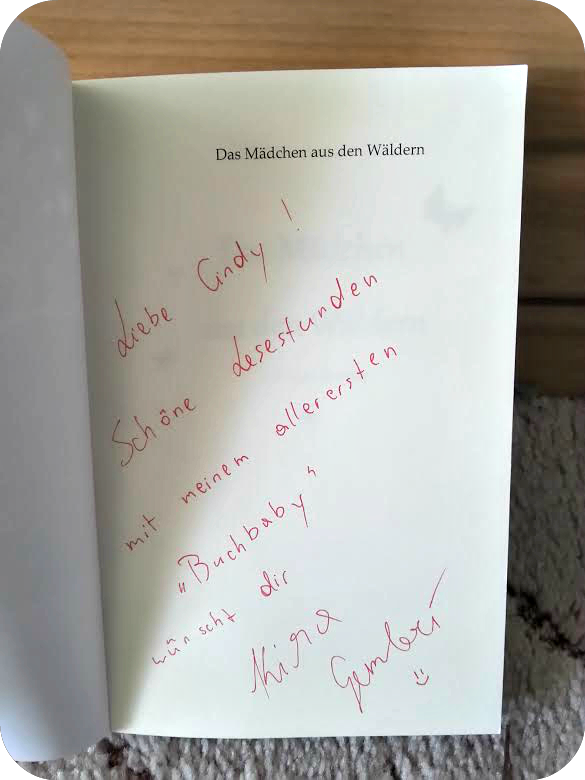 Das Mädchen aus den Wäldern
Liebe Cindy!
Schöne Lesestunden
mit meinem allerersten
„Buchbaby“
wünscht dir
Kira
Gembri